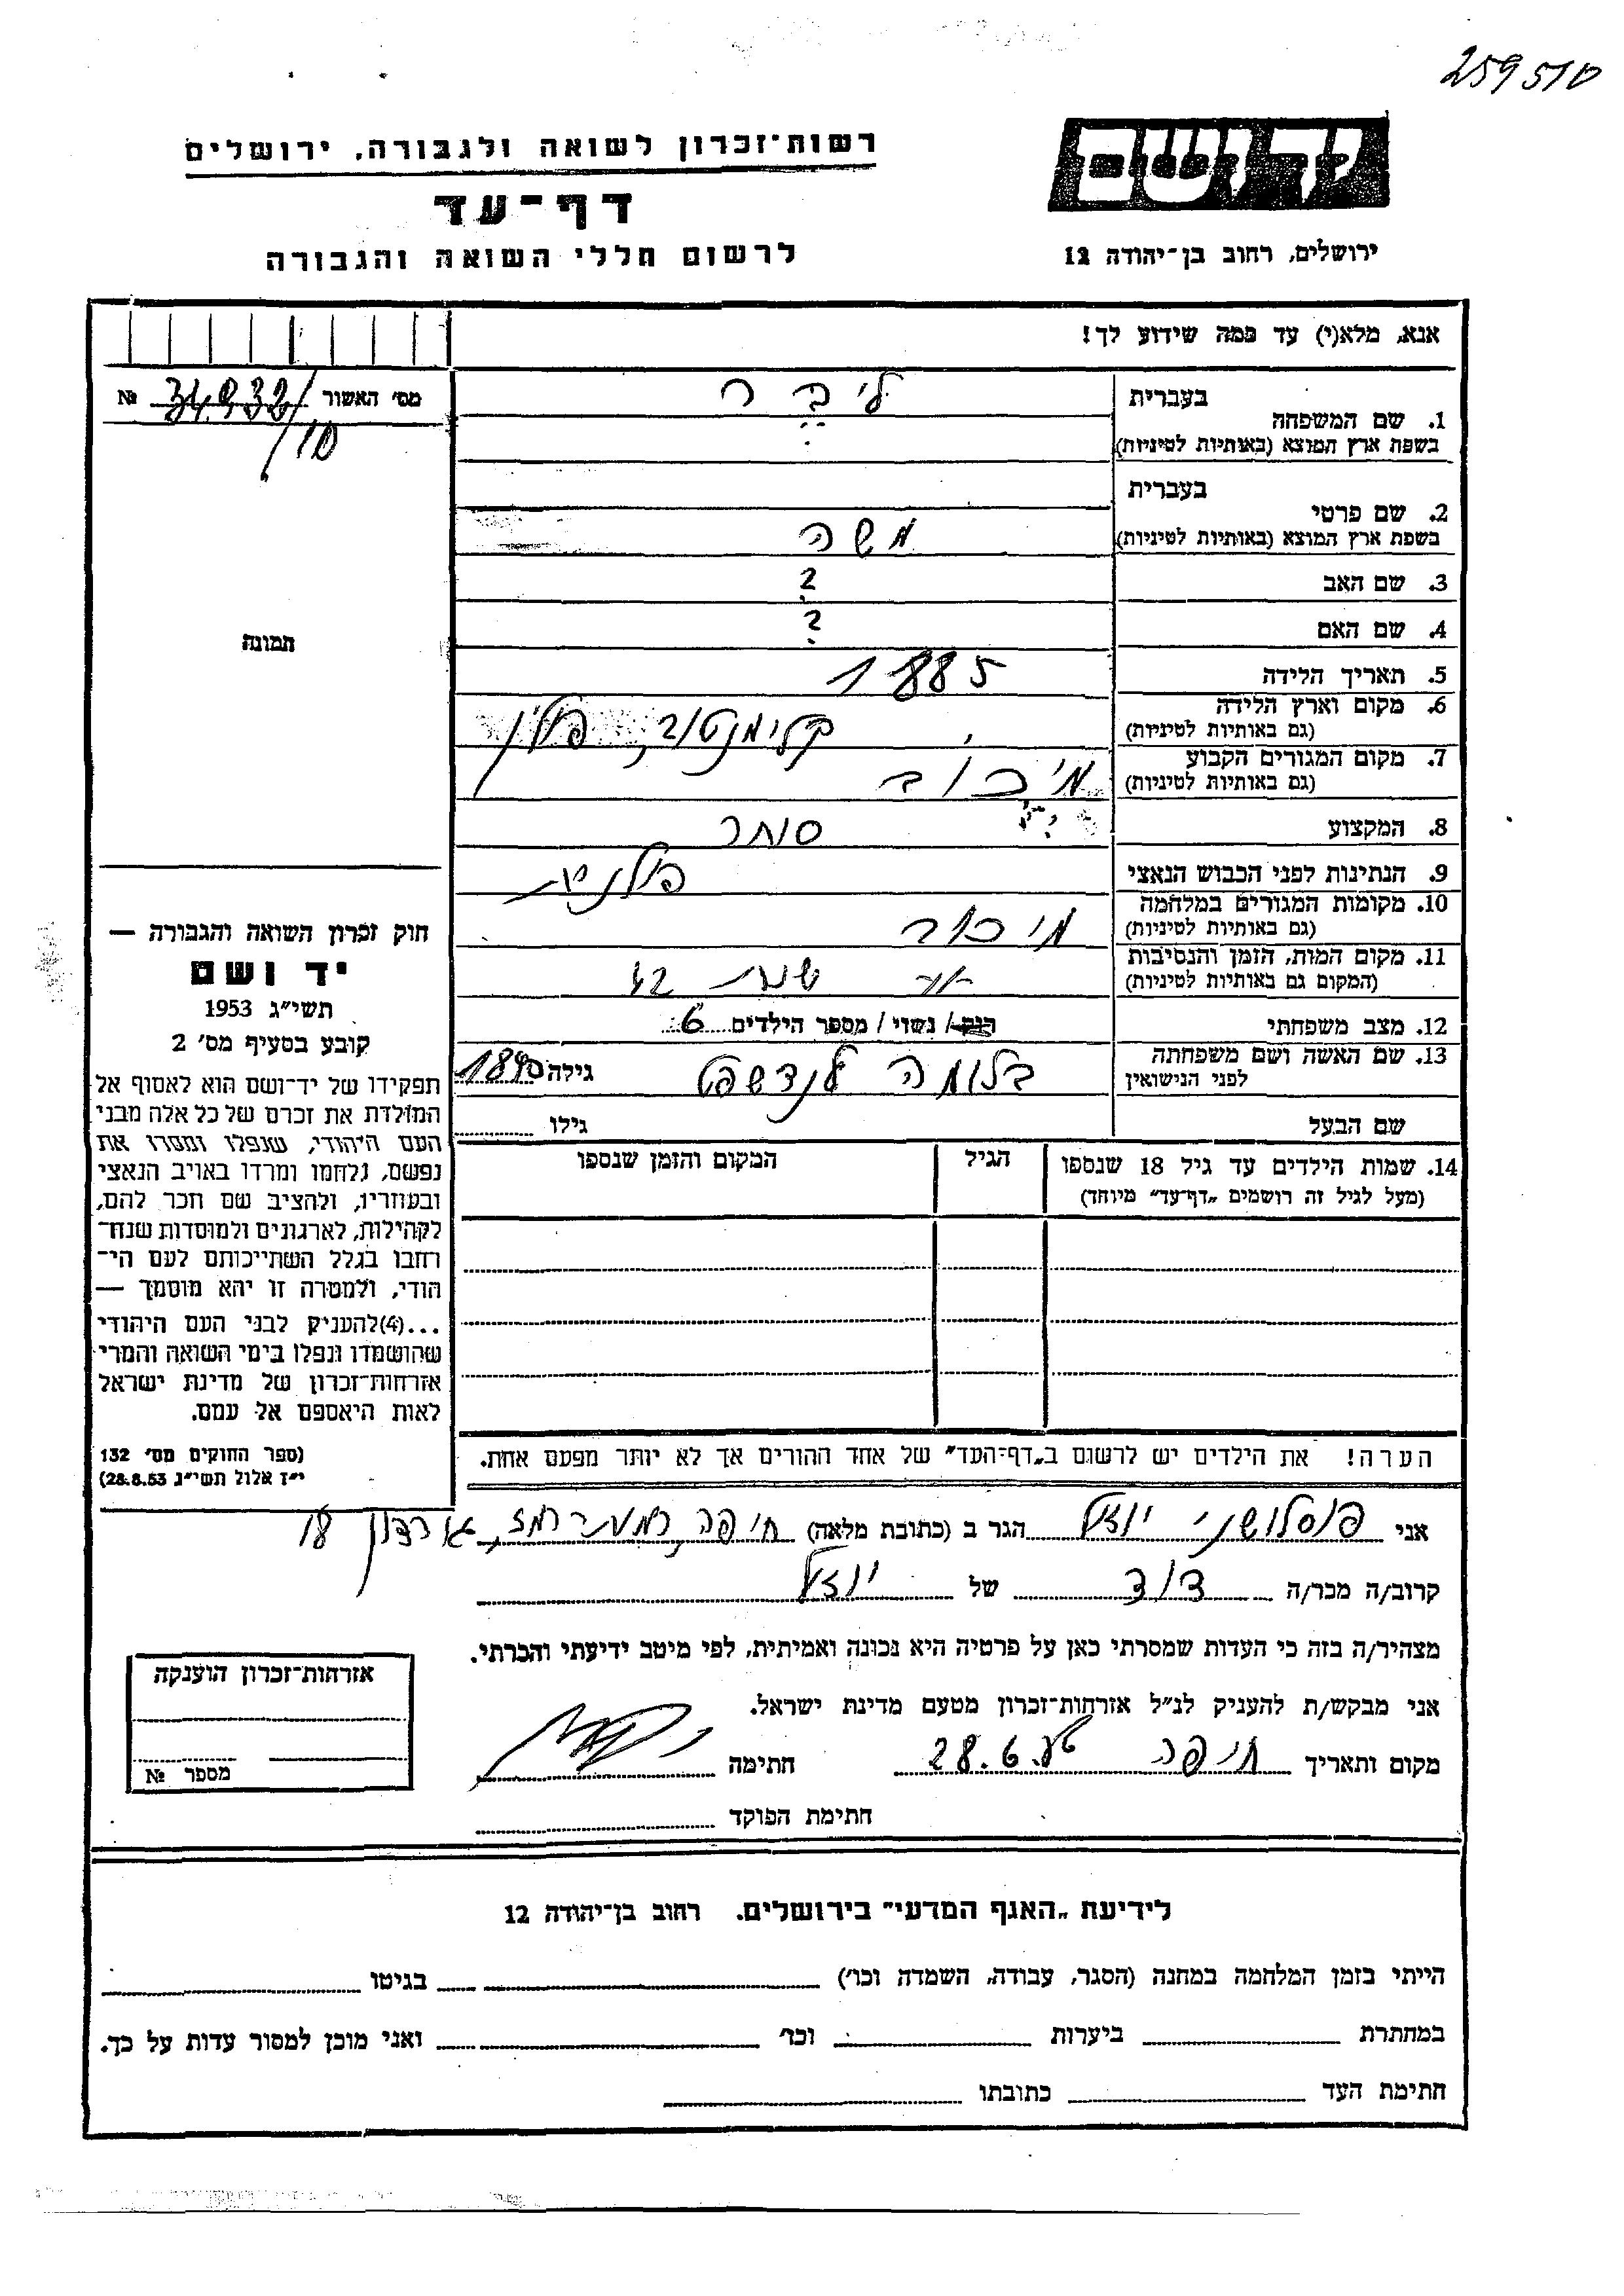 259510
ידושם
ירושלים, רחוב בן־יהודה 12
רשות־זכרון לשואה ולגבורה, ירושלים
דף־עד
לרשום חללי השואה והגבורה
אנא, מלא(י) עד כמה שידוע לך!
מס' האשור № 34932/
10
1. שם המשפחה
בעברית ליבר
בשפת ארץ המוצא (באותיות לטיניות)
2. שם פרטי
בעברית
בשפת ארץ המוצא (באותיות לטיניות) משה
3. שם האב ?
4. שם האם ?
5. תאריך הלידה 1885
6. מקום וארץ הלידה קלימנטוב, פולין
(גם באותיות לטיניות)
7. מקום המגורים הקבוע מיכוב
(גם באותיות לטיניות)
8. המקצוע סוחר
9. הנתינות לפני הכבוש הנאצי פולנית
10. מקומות המגורים במלחמה מיכוב
(גם באותיות לטיניות)
11. מקום המות, הזמן והנסיבות שנת 42
(המקום גם באותיות לטיניות)
12. מצב משפחתי רוק / נשוי / מספר הילדים 6
13. שם האשה ושם משפחתה בלומה לנדשפט גילה 1890
לפני הנישואין
שם הבעל גילו
14. שמות הילדים עד גיל 18 שנספו הגיל המקום והזמן שנספו
(מעל לגיל זה רושמים „דף־עד" מיוחד)
הערה! את הילדים יש לרשום ב„דף־העד" של אחד ההורים אך לא יותר מפעם אחת.
תמונה
חוק זכרון השואה והגבורה —
יד ושם
תשי"ג 1953
קובע בסעיף מס' 2
תפקידו של יד־ושם הוא לאסוף אל
המולדת את זכרם של כל אלה מבני
העם היהודי, שנפלו ומסרו את
נפשם, נלחמו ומרדו באויב הנאצי
ובעוזריו, ולהציב שם וזכר להם,
לקהילות, לארגונים ולמוסדות שנח־
רבו בגלל השתייכותם לעם הי־
הודי, ולמטרה זו יהא מוסמך —
...(4) להעניק לבני העם היהודי
שהושמדו ונפלו בימי השואה והמרי
אזרחות־זכרון של מדינת ישראל
לאות היאספם אל עמם.
(ספר החוקים מס' 132
י"ז אלול תשי"ג 28.8.53)
אני פוסלושני יוזל הגר ב (כתובת מלאה) חיפה, רמת רמז, 18
קרוב/ה מכר/ה דוד של יוזל
מצהיר/ה בזה כי העדות שמסרתי כאן על פרטיה היא נכונה ואמיתית, לפי מיטב ידיעתי והכרתי.
אני מבקש/ת להעניק לנ"ל אזרחות־זכרון מטעם מדינת ישראל.
מקום ותאריך חיפה 28.6. חתימה
חתימת הפוקד
אזרחות־זכרון הוענקה
מספר №
לידיעת „האגף המדעי" בירושלים. רחוב בן־יהודה 12
הייתי בזמן המלחמה במחנה (הסגר, עבודה, השמדה וכו') בגיטו
במחתרת ביערות וכו' ואני מוכן למסור עדות על כך.
חתימת העד כתובתו